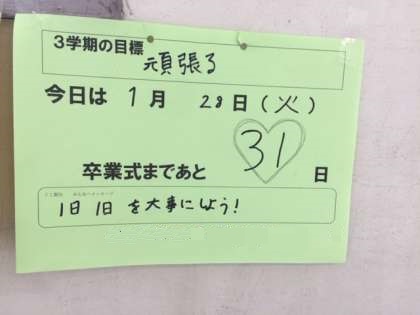 3学期の目標
頑張る
今日は 1月 28日(火)
卒業式まであと 31日
1日1日を大事にしよう!